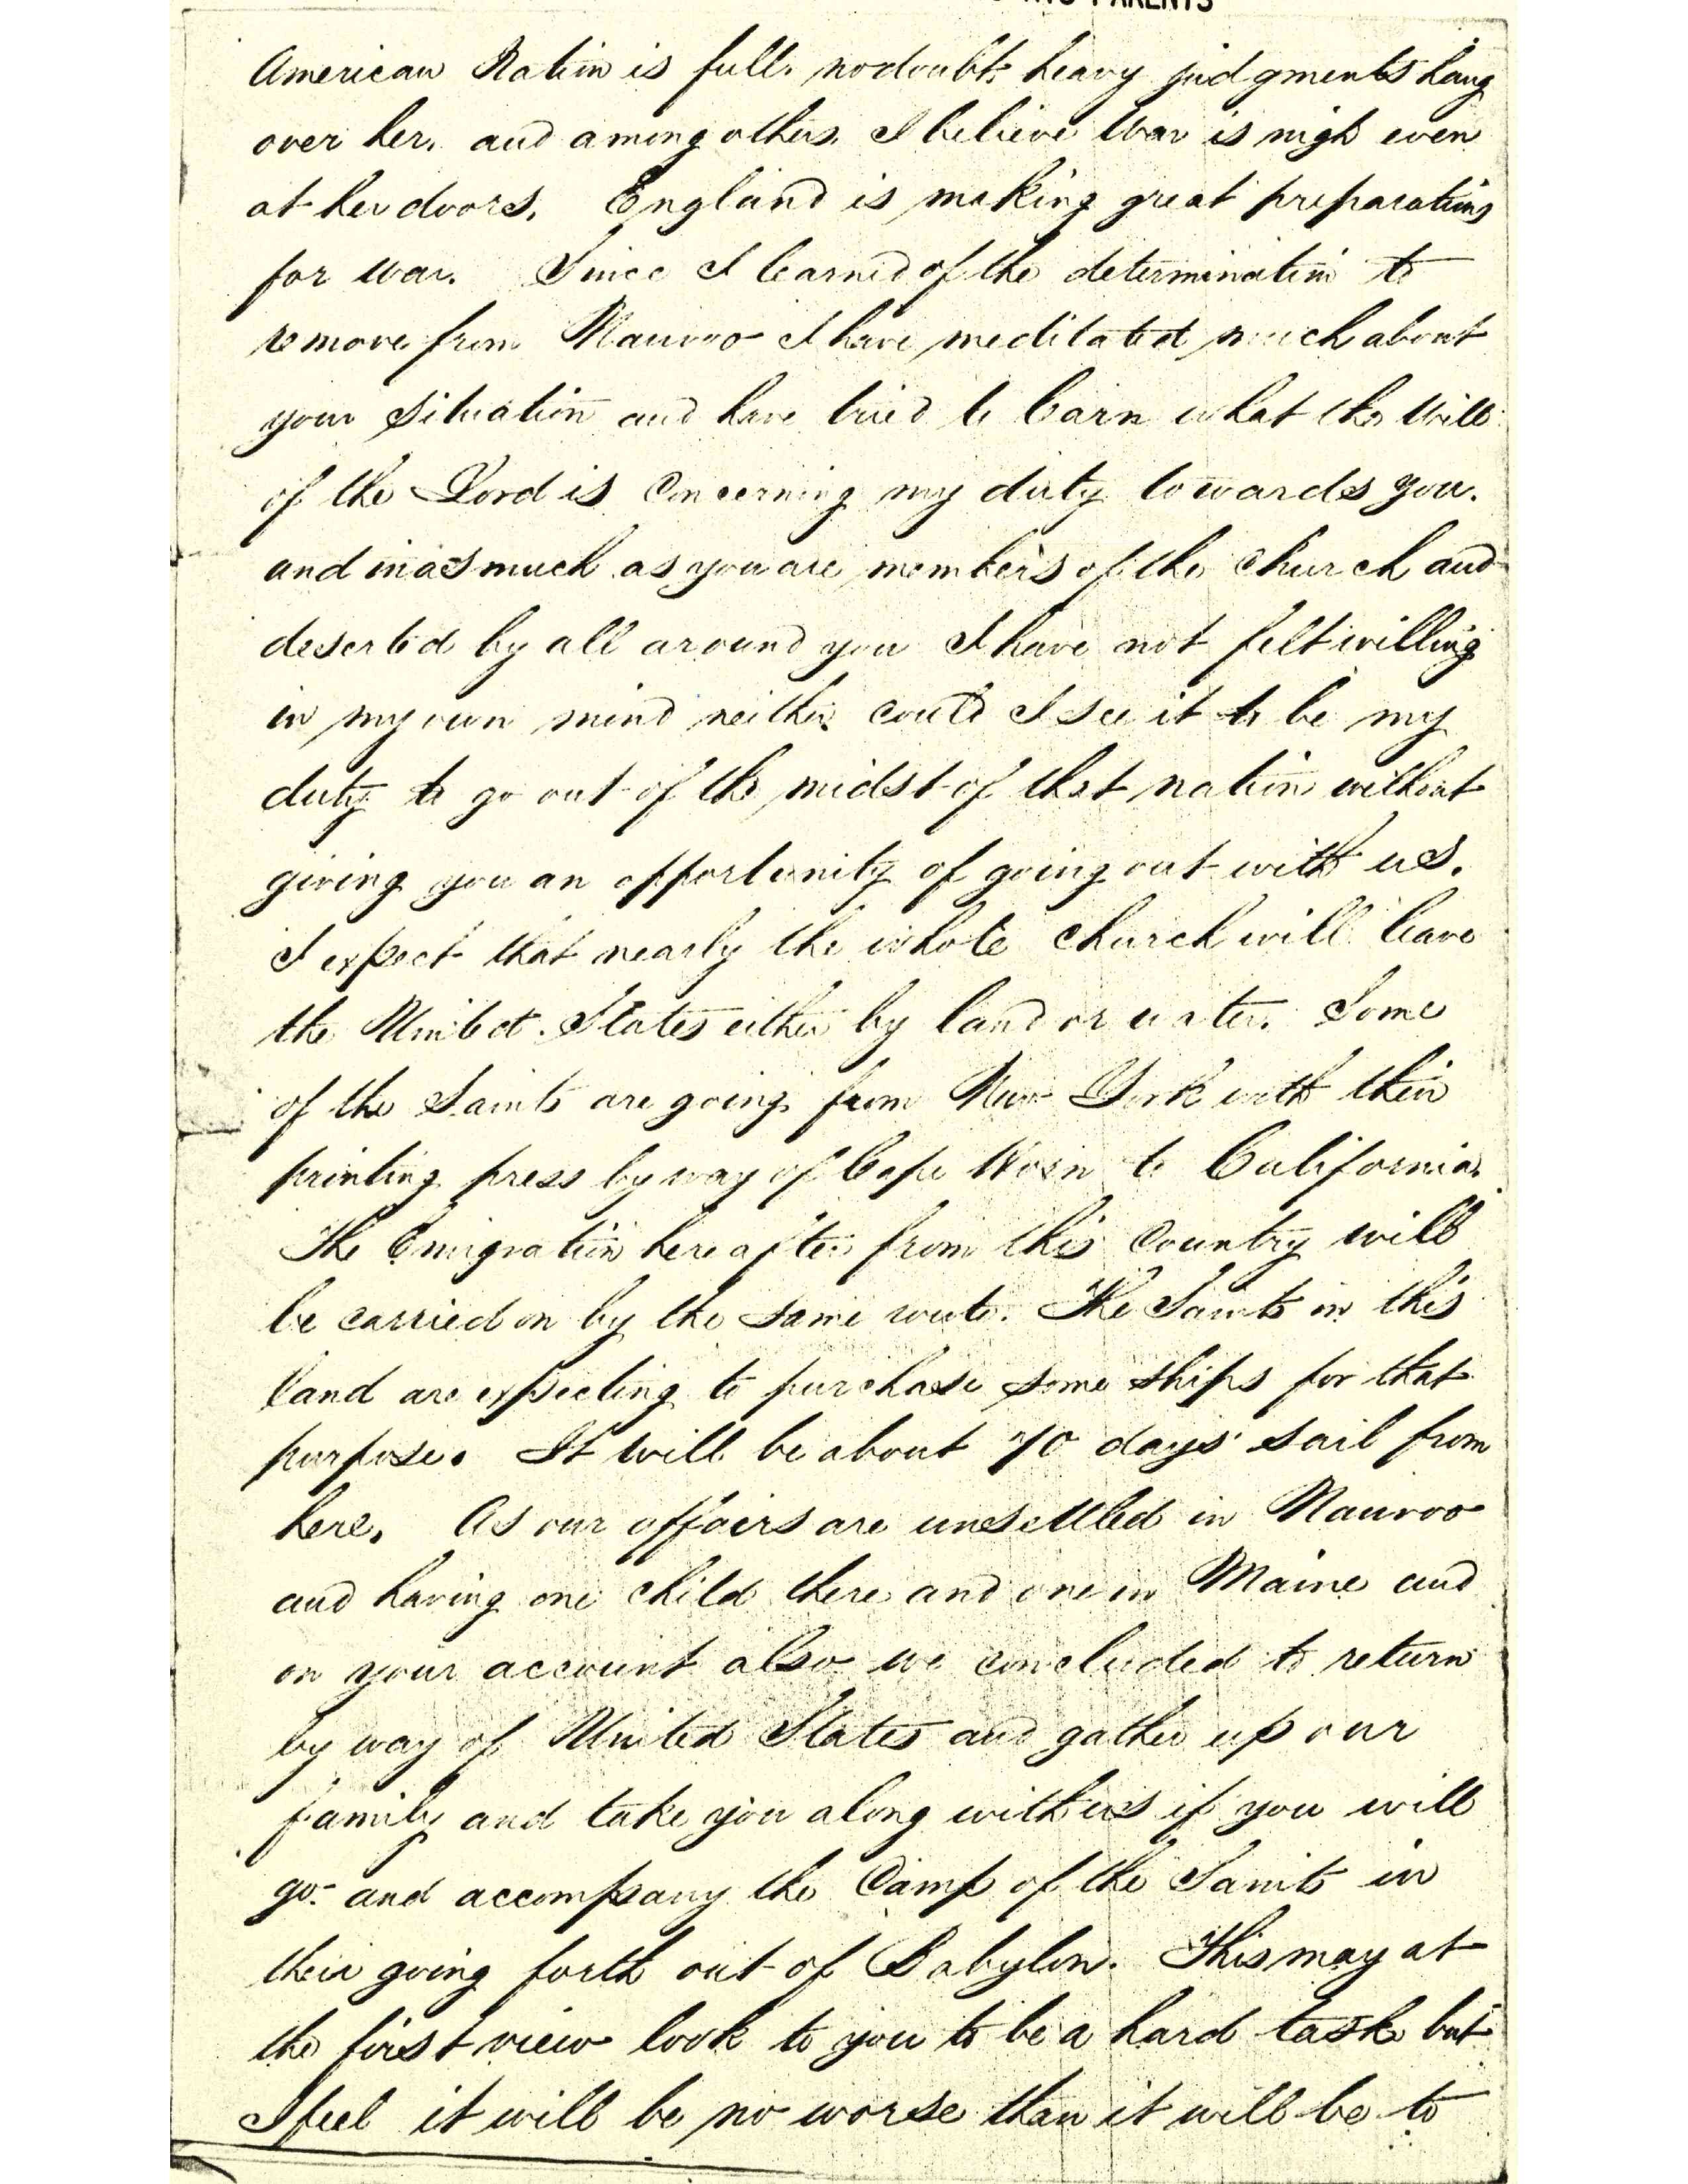 PARENTS
American Nation is full. no doubt heavy judgments hang
over her, and among others, I believe War is nigh even
at her doors. England is making great preparations
for war. Since I learned of the determination to
remove from Nauvoo I have meditated much about
your situation and have tried to learn what the will
of the Lord is concerning my duty towards you.
and inasmuch as you are members of the church and
deserted by all around you I have not felt willing
in my own mind neither could I see it to be my
duty to go out of the midst of that nation without
giving you an opportunity of going out with us.
I expect that nearly the whole church will leave
the United States either by land or water. Some
of the Saints are going from New York with their
printing press by way of Cape Horn to California.
The Emigration hereafter from this Country will
be carried on by the same route. The Saints in this
land are expecting to purchase some ships for that
purpose. It will be about 70 days' sail from
here. As our affairs are unsettled in Nauvoo
and having one child there and one in Maine and
on your account also we concluded to return
by way of United States and gather up our
family and take you along with us if you will
go. and accompany the Camp of the Saints in
their going forth out of Babylon. This may at
the first view look to you to be a hard task but
I feel it will be no worse than it will be to